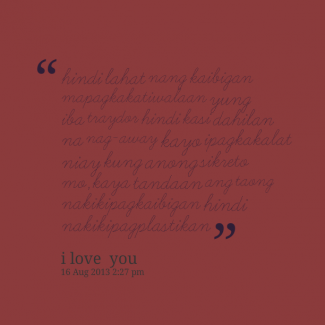 “ hindi lahat nang kaibigan
mapagkakatiwalaan yung
iba traydor hindi kasi dahilan
na nag-away kayo ipagkakalat
niay kung anong sikreto
mo,kaya tandaan ang taong
nakikipagkaibigan hindi
nakikipagplastikan ”
i love you
16 Aug 2013 2:27 pm